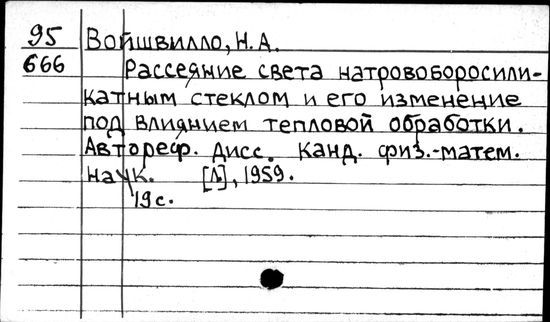 95 Войшвилло, Н.А.
666 Рассеяние света натровоборосили-
катным стеклом и его изменение
под влиянием тепловой обработки.
Автореф. дисс. канд. физ.-матем.
наук. [Л], 1959.
19 с.